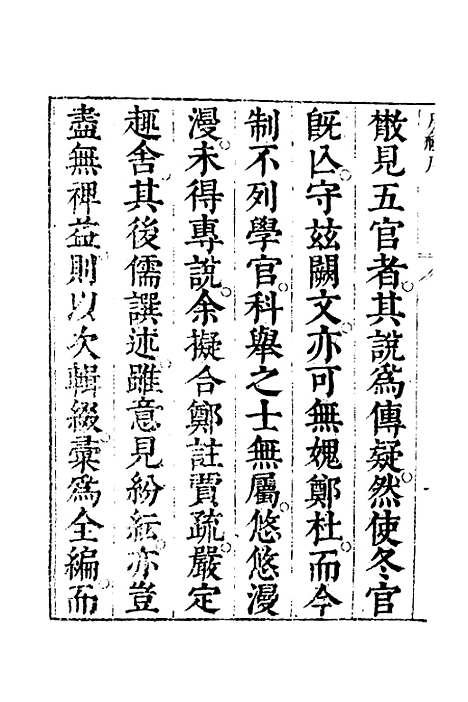 散見五官者其說爲傳疑然使冬官
旣亾守玆闕文亦可無媿鄭杜而今
制不列學官科舉之士無屬悠悠漫
漫未得專說余擬合鄭註賈疏嚴定
趣舍其後儒譔述雖意見紛紜亦豈
盡無裨益則以次輯綴彙爲全編而